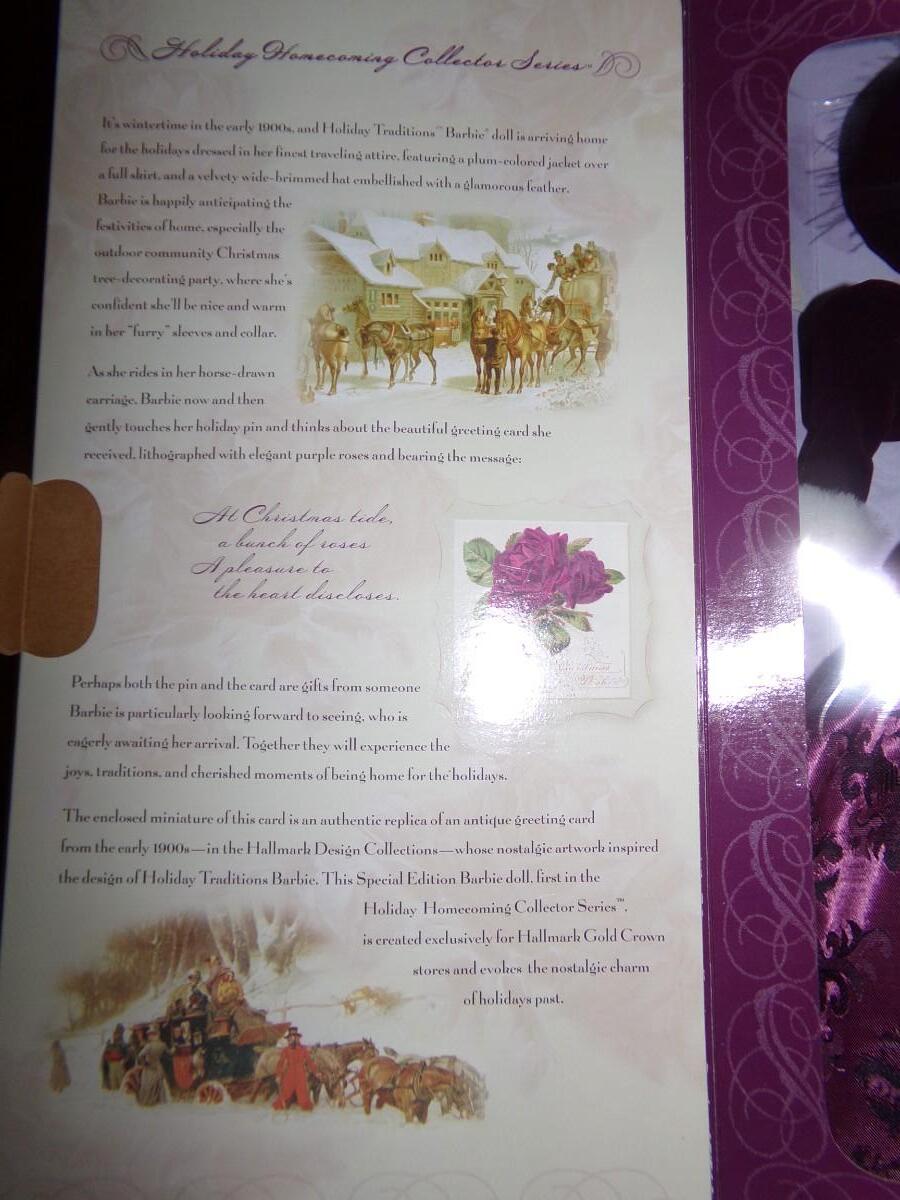 Holiday Homecoming Collector Series™
It's wintertime in the early 1900s, and Holiday Traditions™ Barbie® doll is arriving home
for the holidays dressed in her finest traveling attire, featuring a plum-colored jacket over
a full skirt, and a velvety wide-brimmed hat embellished with a glamorous feather.
Barbie is happily anticipating the
festivities of home, especially the
outdoor community Christmas
tree-decorating party, where she's
confident she'll be nice and warm
in her "furry" sleeves and collar.
As she rides in her horse-drawn
carriage, Barbie now and then
gently touches her holiday pin and thinks about the beautiful greeting card she
received, lithographed with elegant purple roses and bearing the message:
At Christmas tide,
a bunch of roses
A pleasure to
the heart discloses.
Christmas
Perhaps both the pin and the card are gifts from someone
Barbie is particularly looking forward to seeing, who is
eagerly awaiting her arrival. Together they will experience the
joys, traditions, and cherished moments of being home for the holidays.
The enclosed miniature of this card is an authentic replica of an antique greeting card
from the early 1900s—in the Hallmark Design Collections—whose nostalgic artwork inspired
the design of Holiday Traditions Barbie. This Special Edition Barbie doll, first in the
Holiday Homecoming Collector Series™,
is created exclusively for Hallmark Gold Crown
stores and evokes the nostalgic charm
of holidays past.